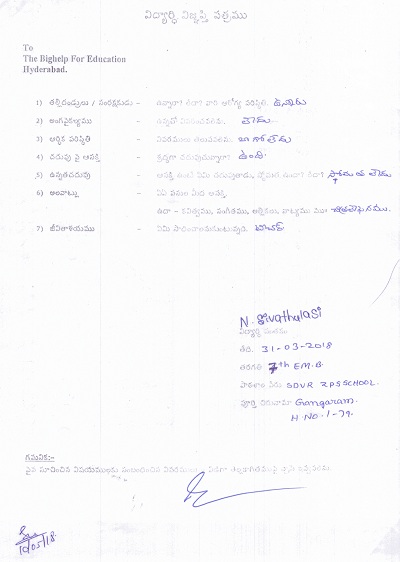 విద్యార్థి విజ్ఞప్తి పత్రము
To
The Bighelp For Education
Hyderabad.
1) తల్లిదండ్రులు / సంరక్షకుడు - ఉన్నారా? లేదా? వారి ఆరోగ్య పరిస్థితి. ఉన్నారు
2) అంగవైకల్యము - ఉన్నచో వివరించవలెను. లేదు.
3) ఆర్థిక పరిస్థితి - వివరములు తెలుపవలెను. బాగోలేదు
4) చదువు పై ఆసక్తి - శ్రద్ధగా చదువుచున్నారా? ఉంది.
5) ఉన్నతచదువు - ఆసక్తి ఉంటే ఏమి చదువుతారు, స్తోమత ఉందా? లేదా? స్తోమత లేదు
6) అలవాట్లు - ఏ ఏ పనుల మీద ఆసక్తి.
ఉదా - కవిత్వము, సంగీతము, అల్లికలు, నాట్యము
7) జీవితాశయము - ఏమి సాధించాలనుకుంటున్నది. టీచర్
N. Sivathulasi
విద్యార్థి సంతకం
తేది. 31-03-2018
తరగతి 7th E.M.B.
పాఠశాల పేరు GDVR ZPSSCHOOL.
పూర్తి చిరునామా Gangaram.
H.NO.1-79.
గమనిక:-
పైన సూచించిన విషయములకు సంబంధించిన వివరములు
10/05/18